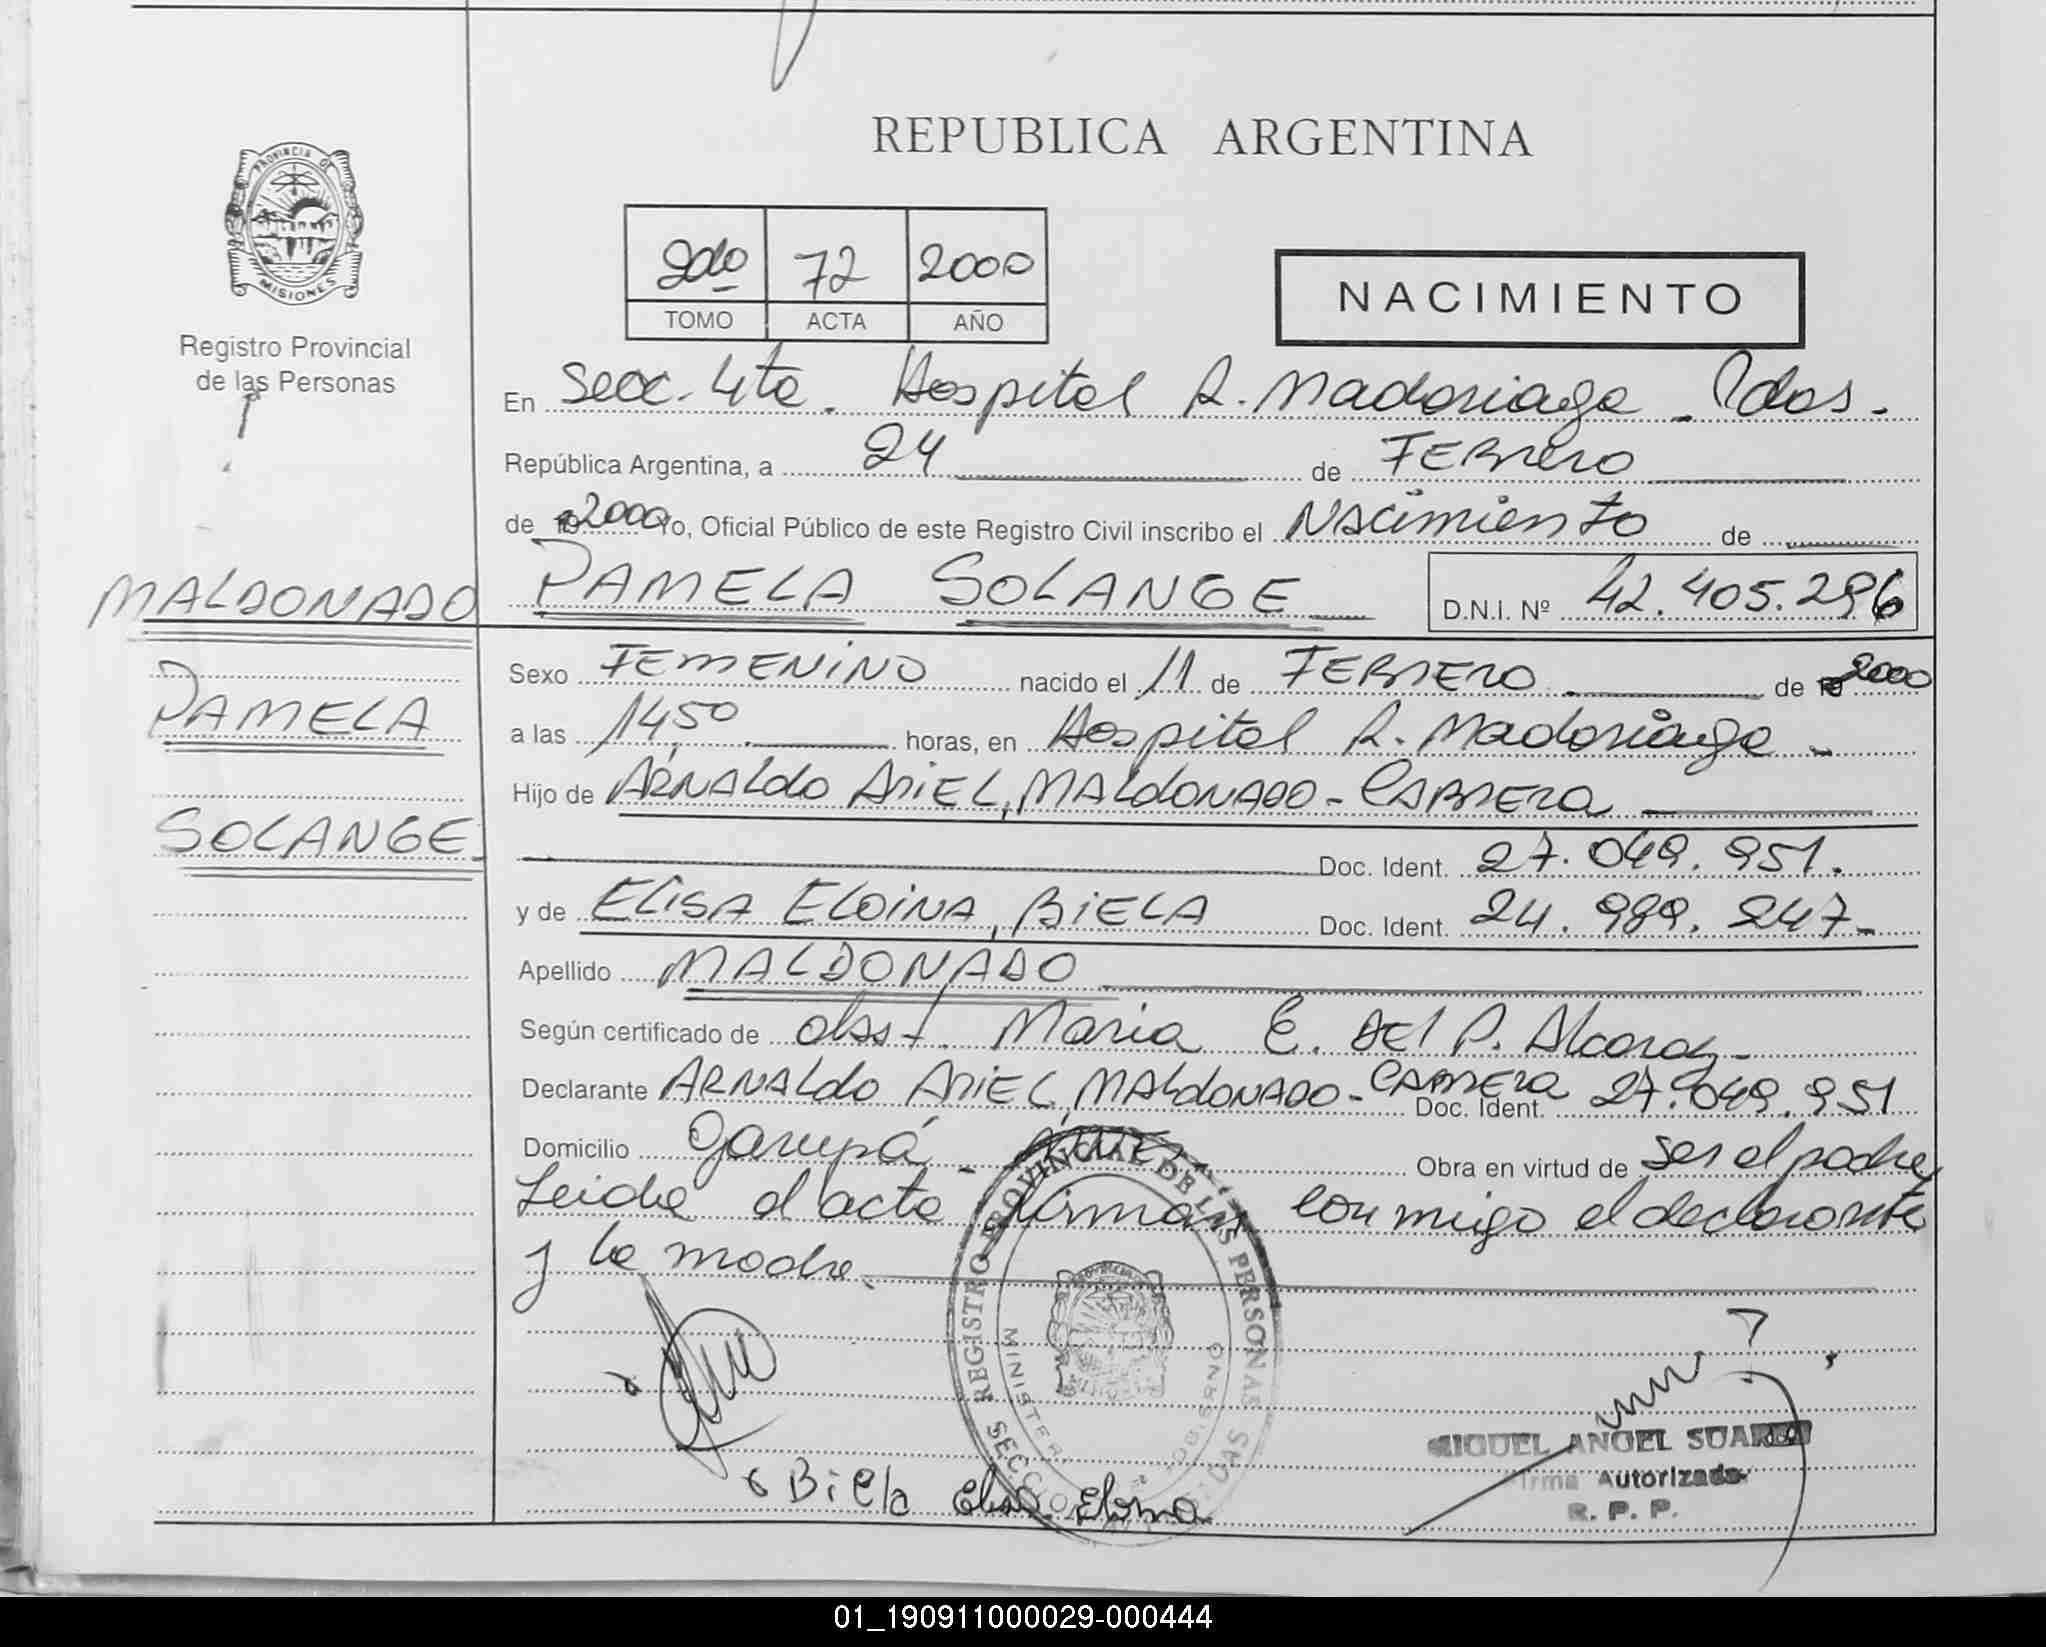 REPUBLICA ARGENTINA
PROVINCIA DE
MISIONES
Registro Provincial
de las Personas
2do 72 2000
TOMO ACTA AÑO
NACIMIENTO
En Secc. 4ta. Hospital R. Madariaga - Pdas.
República Argentina, a 24 de FEBRERO
de 2000 Yo, Oficial Público de este Registro Civil inscribo el NACIMIENTO de
MALDONADO PAMELA SOLANGE D.N.I. Nº 42.405.296
PAMELA
SOLANGE
Sexo FEMENINO nacido el 11 de FEBRERO de 2000
a las 14,50 horas, en Hospital R. Madariaga -
Hijo de ARNALDO ARIEL, MALDONADO - CABRERA
Doc. Ident. 27.049.951.
y de ELISA ELOINA, BIELA Doc. Ident. 24.989.247-
Apellido MALDONADO
Según certificado de obst. Maria E. del P. Alcaraz-
Declarante ARNALDO ARIEL, MALDONADO - CABRERA Doc. Ident. 27.049.951
Domicilio Garupá - Obra en virtud de ser el padre
Leida el acta firman conmigo el declarante
y la madre.
REGISTRO PROVINCIAL DE LAS PERSONAS
Biela Elisa Eloina
MIGUEL ANGEL SUAREZ
Firma Autorizada
R. P. P.
01_190911000029-000444